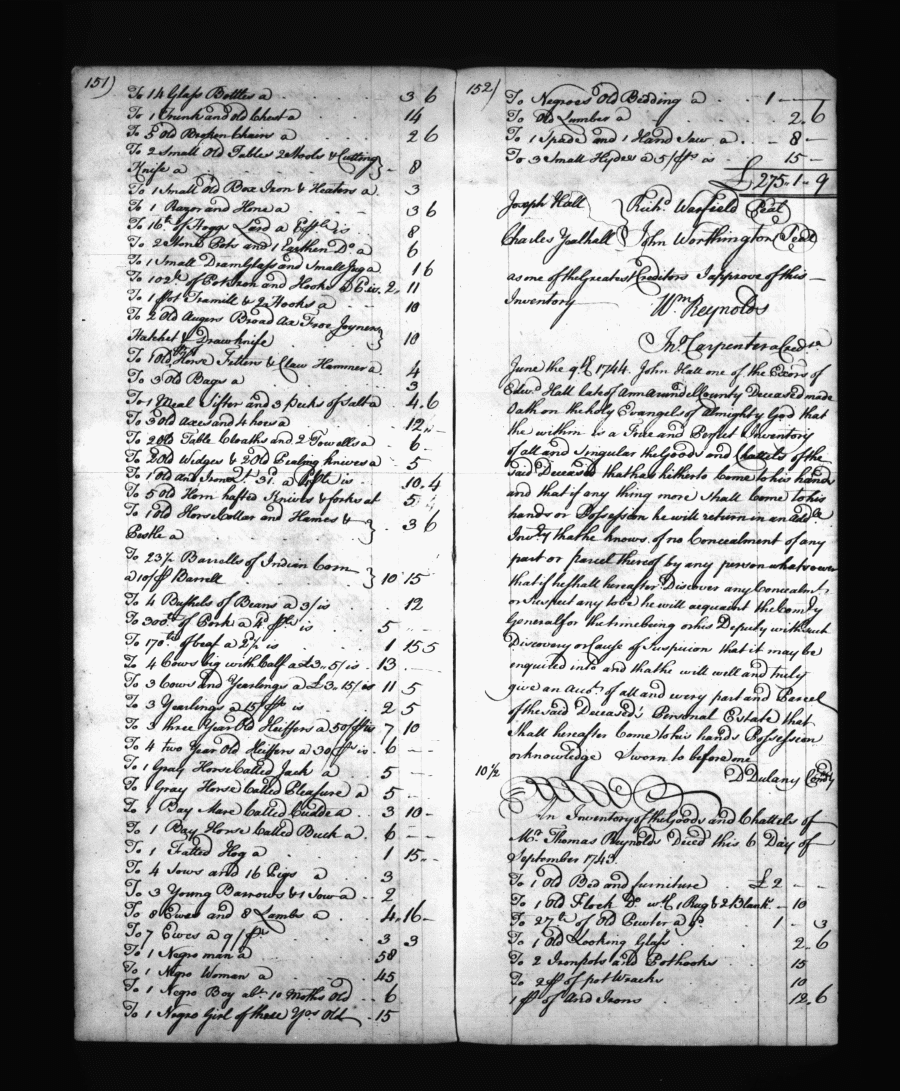 151)
To 14 Glass Bottles a 3 6
To 1 Trunk and old Chest a 14
To 5 Old Broken Chairs a 2 6
To 2 Small Old Tables 2 Stools & Cutting
Knife a 8
To 1 Small Old Box Iron & Heaters a 3
To 1 Razor and Hone a 3 6
To 16lb of Hoggs Lard a 6d pr lb is 8
To 2 Stone Pots and 1 Earthen Do a 6
To 1 Small Dram Glass and Small Jug a 1 6
To 102lb of Pot Iron and Hooks a 2 11
To 1 Pot Tramill & 2 Hooks a 10
To 2 Old Augers Broad Ax Froe Joyner
Hatchet & Drawknife 10
To 1 Old Horse Fetters & Claw Hammer a 4
To 3 Old Bags a 3
To 1 Meal Sifter and 3 Pecks of Salt a 4 6
To 3 Old Axes and 4 hoes a 12
To 2 Old Table Cloaths and 2 Towells a 6
To 2 Old Widges & 2 Old Pealing knives a 5
To 1 Old And Iron 31 a is 10 4
To 5 Old Horn hafted Knives & forks at 5
To 1 Old Horse Collar and Hames &
Pestle a 3 6
To 23½ Barrells of Indian Corn
a 10/ pr Barrell 10 15
To 4 Bushels of Beans a 3/ is 12
To 300lb of Pork a 4d pr lb is 5
To 170lb of beaf a 2½ is 1 15 5
To 4 Cows big with Calf a £3.. 5/ is 13
To 3 Cows and Yearlings a £3.. 15/ is 11 5
To 3 Yearlings a 15/ pr is 2 5
To 3 three Year Old Heiffers a 50/ pr is 7 10
To 4 two Year Old Heiffers a 30/ pr is 6
To 1 Gray Horse Called Jack a 5
To 1 Gray Horse Called Pleasure a 5
To 1 Bay Mare Called Cudde a 3 10
To 1 Bay Horse Called Buck a 6
To 1 Fatted Hog a 1 15
To 4 Sows and 16 Pigs a 3
To 3 Young Barrows & 1 Sow a 2
To 8 Ewes and 8 Lambs a 4 16
To 7 Ewes a 9/ pr 3 3
To 1 Negro man a 58
To 1 Negro Woman a 45
To 1 Negro Boy abt. 10 Moths Old 6
To 1 Negro Girl of three Yrs Old 15
152)
To Negroes Old Bedding a 1
To Old Lumber a 2 6
To 1 Spade and 1 Hand Saw a 8
To 3 Small Hydes a 5/ pr is 15
£275 1 9
Joseph Hall Richd Warfield Seal
Charles Yealhall John Worthington Seal
as one of the Greatest Creditors I approve of this
Inventory Wm Reynolds
Jno Carpenter a Credr
June the 9th 1744. John Hall one of the Exors of
Edwd Hall late of Ann Arundell County Deceased made
Oath on the holy Evangels of Almighty God that
the within is a True and Perfect Inventory
of all and singular the Goods and Chattels of the
said Deceased that has hitherto Come to his hands
and that if any thing more shall Come to his
hands or Possession he will return in an Addl
Invry that he knows of no Concealment of any
part or parcel thereof by any person whatsoever
that if he shall hereafter Discover any Concealmt
or suspect any to be he will acquaint the Comry
General for the time being or his Deputy with such
Discovery or Cause of Suspicion that it may be
enquired into and that he will well and truly
give an Acct of all and every part and Parcel
of the said Deceased's Personal Estate that
shall hereafter Come to his hands Possession
or knowledge Sworn to before me
D Dulany Comry
10½
An Inventory of the Goods and Chattels of
Mr Thomas Reynolds Deced this 6 Day of
September 1743.
To 1 Old Bed and furniture £2
To 1 Old Flock Do wth 1 Rug & 2 Blankt 10
To 27lb of Old Pewter a 9d 1 3
To 1 Old Looking Glass 2 6
To 2 Ironpots and Pothooks 15
To 2 pr of pot Wracks 10
1 pr of And Irons 12 6